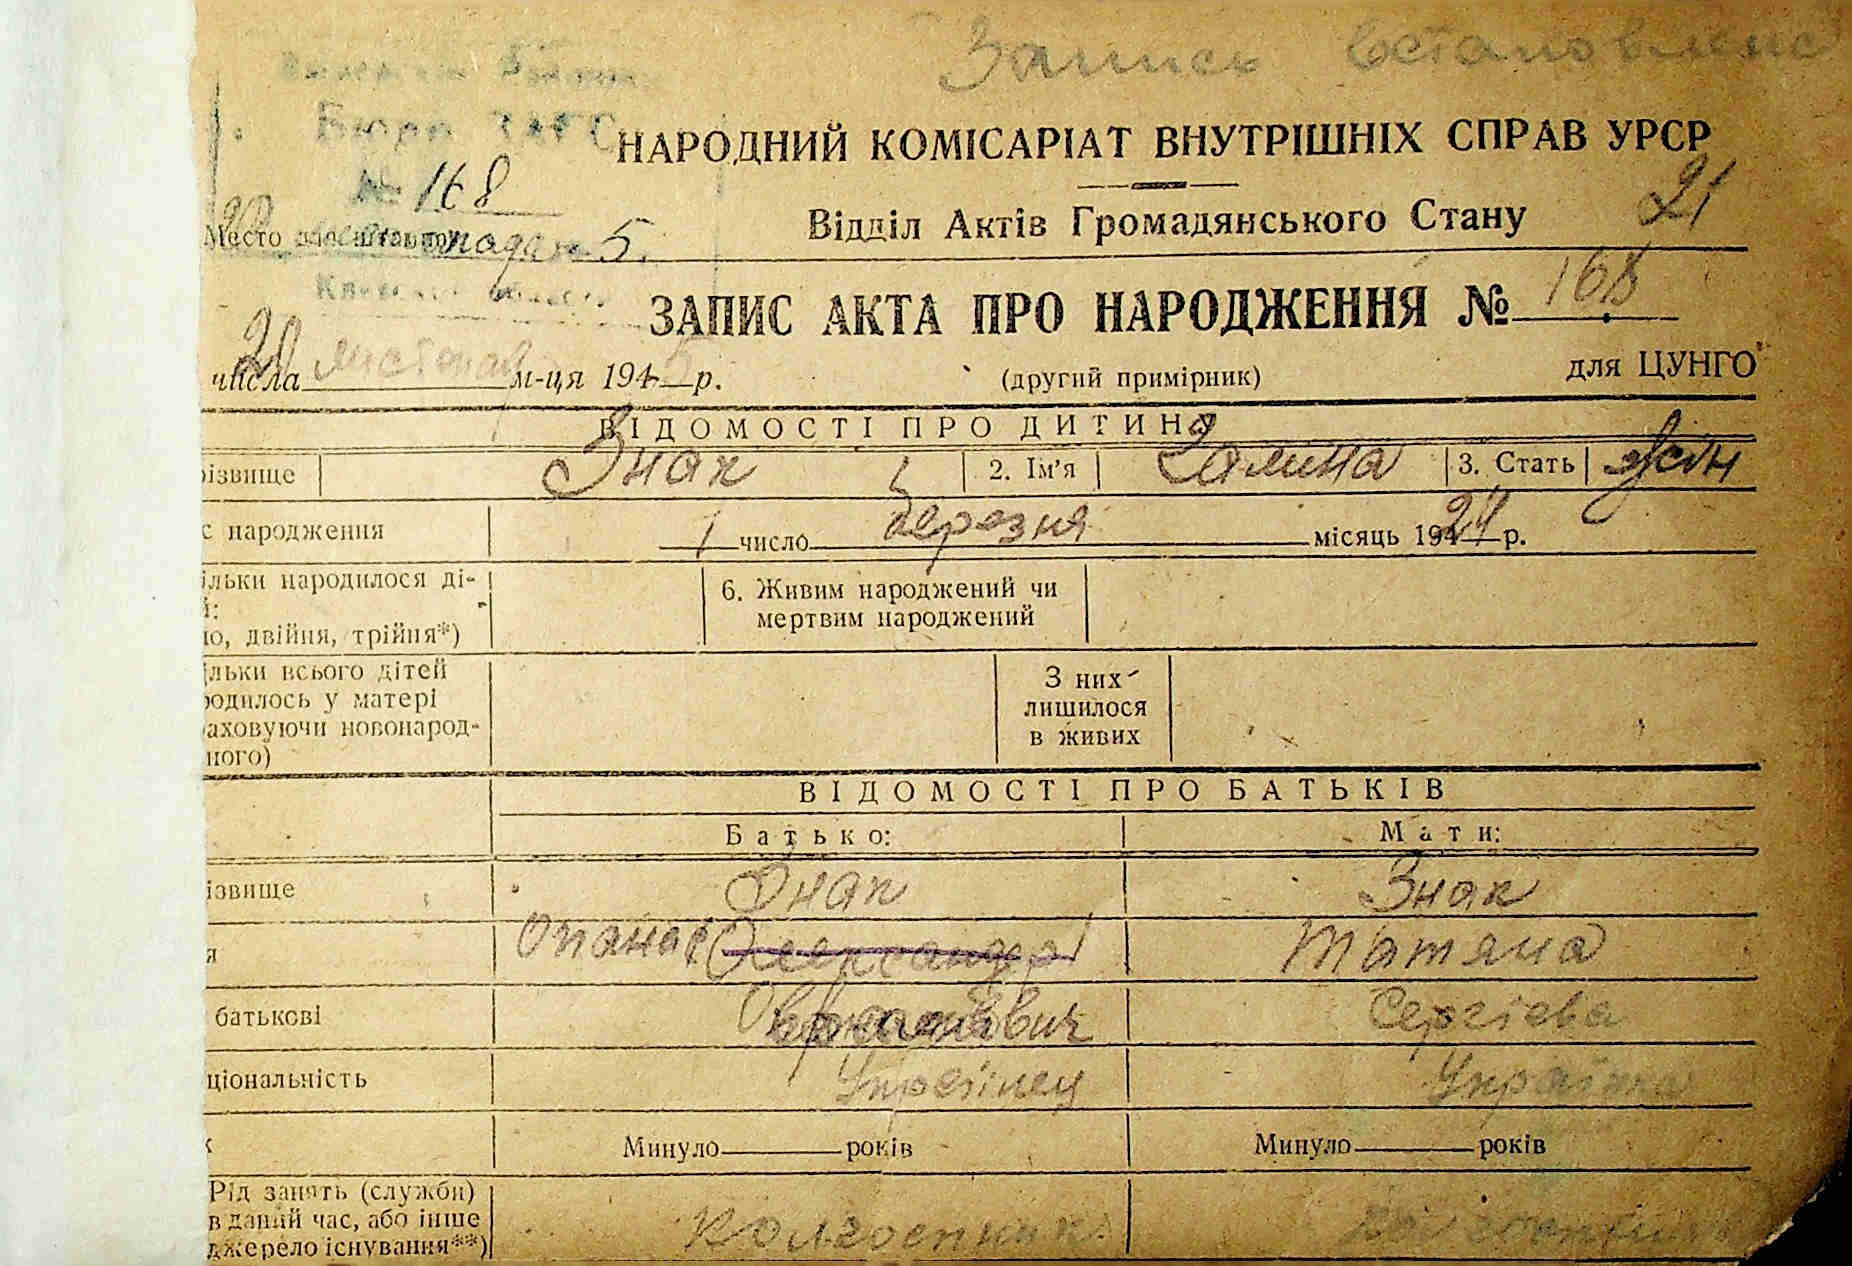 Запись встановлено
Бюро ЗАГС
НАРОДНИЙ КОМІСАРІАТ ВНУТРІШНІХ СПРАВ УРСР
№ 168
21
Відділ Актів Громадянського Стану
Место для штампу
листопада 5.
Київської області
ЗАПИС АКТА ПРО НАРОДЖЕННЯ № 168
числа листопад м-ця 1945 р. (другий примірник) для ЦУНГО
ВІДОМОСТІ ПРО ДИТИНУ
різвище Знак 2. Ім'я Галина 3. Стать жін
с народження 1 число березня місяць 1924 р.
ільки народилося ді-
й:
но, двійня, трійня*)
6. Живим народжений чи
мертвим народжений
ільки всього дітей
родилось у матері
раховуючи новонарод-
ного)
З них
лишилося
в живих
ВІДОМОСТІ ПРО БАТЬКІВ
Батько: Мати:
ізвище Знак Знак
я Опанас Олександр Татяна
батькові Сергієва
ціональність Українец Українка
к Минуло років Минуло років
Рід занять (служби)
в даний час, або інше
джерело існування**)
Колгоспник колгоспниця